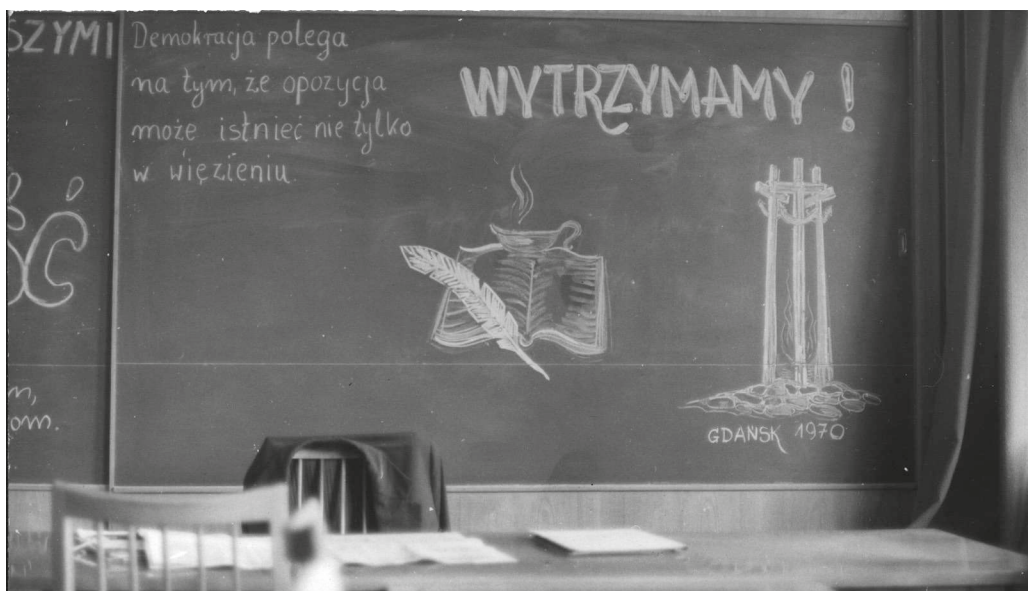 SZYMI
Demokracja polega
na tym, że opozycja
może istnieć nie tylko
w więzieniu.
WYTRZYMAMY!
ŚĆ
m,
om.
GDAŃSK 1970